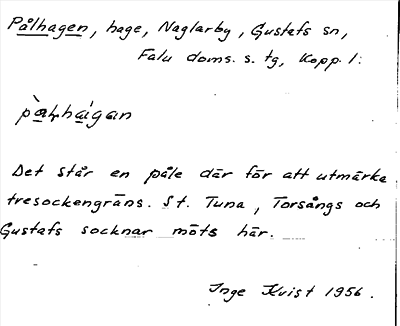 Pålhagen, hage, Naglarby, Gustafs sn,
Falu doms. s. tg, Kopp. l.
Det står en påle där för att utmärka
tresockengräns. St. Tuna, Torsångs och
Gustafs socknar möts här.
Inge Kvist 1956.